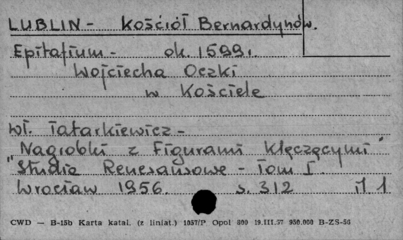 LUBLIN - Kościół Bernardynów.
Epitafium - ok. 1599 r.
Wojciecha Oczki
w Kościele
wł. Tatarkiewicz -
Nagrobki z Figurami Klęczącymi
"Studia Renesansowe - Tom I.
Wrocław 1956. s. 312 il. 1
CWD — B-15b Karta katal. (z liniat.) 1057/P Opol